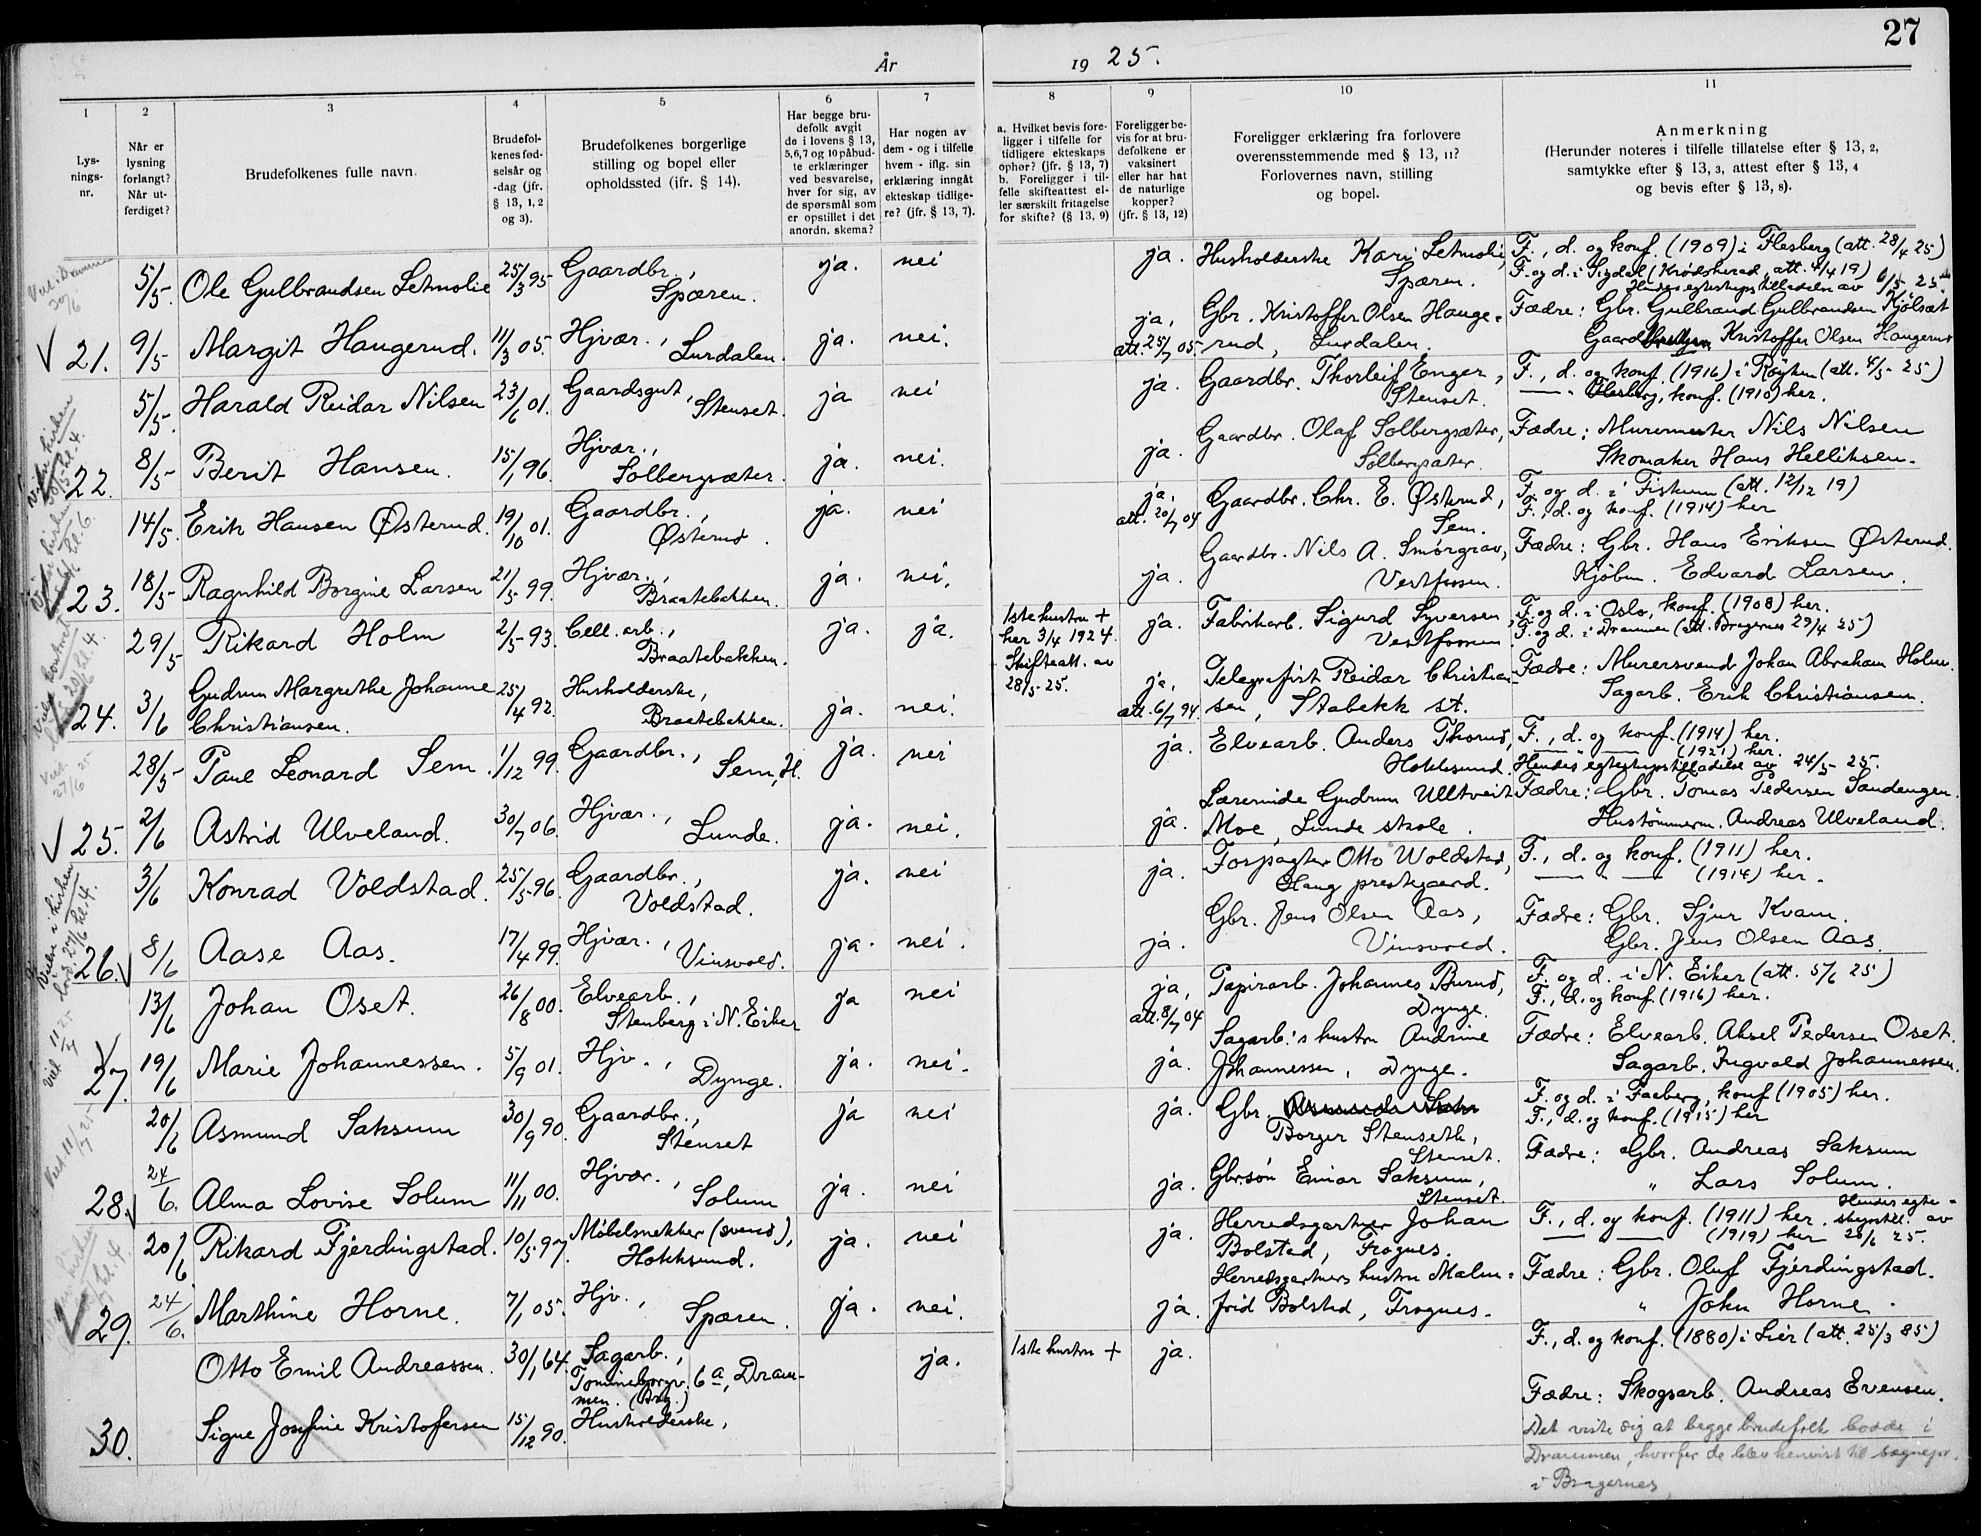 27
År 1925.
1
2
3
4
5
6
7
8
9
10
11
Lys-
nings-
nr.
Når er
lysning
forlangt?
Når ut-
ferdiget?
Brudefolkenes fulle navn.
Brudefol-
kenes fød-
selsår og
-dag (jfr.
§ 13, 1, 2
og 3).
Brudefolkenes borgerlige
stilling og bopel eller
opholdssted (jfr. § 14).
Har begge bru-
defolk avgit
de i lovens § 13,
5,6,7 og 10 påbud-
te erklæringer
ved besvarelse,
hver for sig, av
de spørsmål som
er opstillet i det
anordn. skema?
Har nogen av
dem - og i tilfelle
hvem - iflg. sin
erklæring inngåt
ekteskap tidlige-
re? (jfr. § 13, 7).
a. Hvilket bevis fore-
ligger i tilfelle for
tidligere ekteskaps
ophor? (jfr. § 13, 7)
b. Foreligger i til-
felle skifteattest el-
ler særskilt fritagelse
for skifte? (§ 13, 9)
Foreligger be-
vis for at bru-
defolkene er
vaksinert
eller har hat
de naturlige
kopper?
(jfr. § 13, 12)
Foreligger erklæring fra forlovere
overensstemmende med § 13, 11?
Forlovernes navn, stilling
og bopel.
Anmerkning
(Herunder noteres i tilfelle tillatelse efter § 13, 2,
samtykke efter § 13, 3, attest efter § 13, 4
og bevis efter § 13, 8).
5/5. Ole Gulbrandsen Setmolie 25/3 95 Gaardbr., Spæren. ja. nei ja. Husholderske Kari Setmolie, Spæren.
F., d. og konf. (1909) i Flesberg (att. 28/4 25)
F. og d. i Sigdal (Krødsherad, att. 4/4 19)
Hendes egteskapstilladelse av 6/5 25
21. 9/5 Margit Haugerud. 11/3 05. Hjvær., Lurdalen. ja. nei. ja, att. 25/7 05 Gbr. Kristoffer Olsen Hauge-
rud, Lurdalen.
Fædre: Gbr. Gulbrand Gulbrandsen Kjølsæt
Gaardbruker Kristoffer Olsen Haugerud
5/5. Harald Reidar Nilsen 23/6 01. Gaardsgut, Stenset. ja nei ja. Gaardbr. Thorleif Enger, Stenset.
F., d. og konf. (1916) i Røyken (att. 4/5 - 25)
Flesberg, konf. (1910) her.
22. 8/5 Berit Hansen. 15/1 96. Hjvær., Solbergsæter ja. nei. ja. Gaardbr. Olaf Solbergsæter, Solbergsæter.
Fædre: Murermester Nils Nilsen
Skomaker Hans Helliksen.
14/5. Erik Hansen Østerud. 19/10 01. Gaardbr., Østerud. ja. nei ja, att. 20/7 04 Gaardbr. Chr. E. Østerud, Sem.
F. og d. i Fiskum (att. 12/12 19)
F., d. og konf. (1914) her
23. 18/5 Ragnhild Borgine Larsen 21/5 99. Hjvær., Braatebakken. ja. nei. ja. Gaardbr. Nils A. Smørgrav, Vestfossen.
Fædre: Gbr. Hans Eriksen Østerud.
Kjøbm. Edvard Larsen.
29/5 Rikard Holm 2/5 93. Cell. arb., Braatebakken. ja. ja. 1ste hustru +
her 3/4 1924.
Skifteatt. av
28/5 - 25.
ja. Fabrikarb. Sigurd Syversen, Vestfossen
F. og d. i Oslo, konf. (1908) her.
F. og d. i Drammen (att. Bragernes 29/4 25)
24. 3/6 Gudrun Margrethe Johanne
Christiansen. 25/4 92. Husholderske, Braatebakken. ja. nei. ja, att. 6/7 94 Telegrafist Reidar Christian-
sen, Stabekk st.
Fædre: Murersvend Johan Abraham Holm
Sagarb. Erik Christiansen.
28/5 Paul Leonard Sem. 1/12 99. Gaardbr., Sem, H. ja. nei ja. Elvearb. Anders Thorud, Hokksund.
F., d. og konf. (1914) her.
(1921) her.
Hendes egteskapstilladelse av 24/5 - 25.
25. 2/6 Astrid Ulveland. 30/7 06. Hjvær., Lunde. ja. nei. ja. Lærerinde Gudrun Ulltveit
Moe, Lunde skole.
Fædre: Gbr. Tomas Pedersen Sandengen.
Hustømmerm. Andreas Ulveland.
3/6 Konrad Voldstad. 25/5 96. Gaardbr., Voldstad. ja. nei ja. Forpagter Otto Woldstad,
Haug prestegaard.
F., d. og konf. (1911) her.
(1914) her.
26. 8/6 Aase Aas. 17/4 99. Hjvær., Vinsvold. ja. nei. ja. Gbr. Jens Olsen Aas,
Vinsvold.
Fædre: Gbr. Sjur Kvam.
Gbr. Jens Olsen Aas.
13/6 Johan Oset. 26/8 00. Elvearb., Stenberg i N. Eiker ja nei ja, att. 8/7 04 Papirarb. Johannes Burud, Dynge.
F. og d. i N. Eiker (att. 5/6 25)
F., d. og konf. (1916) her.
27. 19/6 Marie Johannessen. 5/9 01. Hjv., Dynge. ja. nei. ja. Sagarb.'s hustru Andrine
Johannessen, Dynge.
Fædre: Elvearb. Aksel Pedersen Oset.
Sagarb. Ingvald Johannessen.
20/6 Asmund Saksum 30/9 90. Gaardbr., Stenset ja nei ja. Gbr. Asmund Saks
Borger Stenseth, Stenset.
F. og d. i Faaberg, konf (1905) her.
F., d. og konf. (1915) her
28. 24/6. Alma Lovise Solum 11/11 00. Hjvær., Solum ja. nei ja. Gbrsøn Einar Saksum, Stenset
Fædre: Gbr. Andreas Saksum
" Lars Solum.
20/6 Rikard Fjerdingstad. 10/5 97. Møbelsnekker (svend), Hokksund. ja. nei ja. Herredsgartner Johan
Bolstad, Frognes.
F., d. og konf. (1911) her. Hendes egte-
(1919) her av 20/6 25.
29. 24/6. Marthine Horne. 7/1 05. Hjv., Spæren. ja. nei. ja. Herredsgartners hustru Malm-
frid Bolstad, Frognes.
Fædre: Gbr. Oluf Fjerdingstad.
" John Horne.
Otto Emil Andreassen. 30/1 64. Sagarb., 6a, Dram-
men. (Brg.) ja. 1ste hustru + ja.
F., d. og konf. (1880) i Lier (att. 25/3 85)
Fædre: Skogsarb. Andreas Evensen.
30. Signe Josefine Kristofersen 15/12 90. Husholderske,
Det viste sig at begge brudefolk bodde i
Drammen, hvorfor de blev henvist til sognepr.
i Bragernes